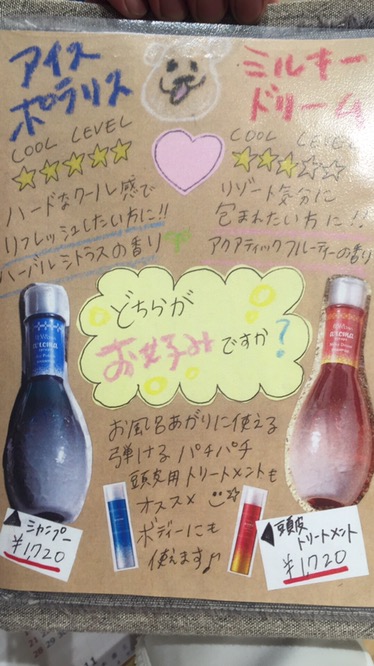 アイス
ポラリス
COOL LEVEL
ハードなクール感で
リフレッシュしたい方に!!
ハーバルシトラスの香り
ミルキー
ドリーム
COOL LEVEL
リゾート気分に
包まれたい方に!!
アクアティックフルーティーの香り
どちらが
お好み
ですか?
aroma
aroma
お風呂あがりに使える
弾ける パチパチ
頭皮用トリートメントも
オススメ
ボディーにも
使えます♪
シャンプー
¥1720
頭皮
トリートメント
¥1720